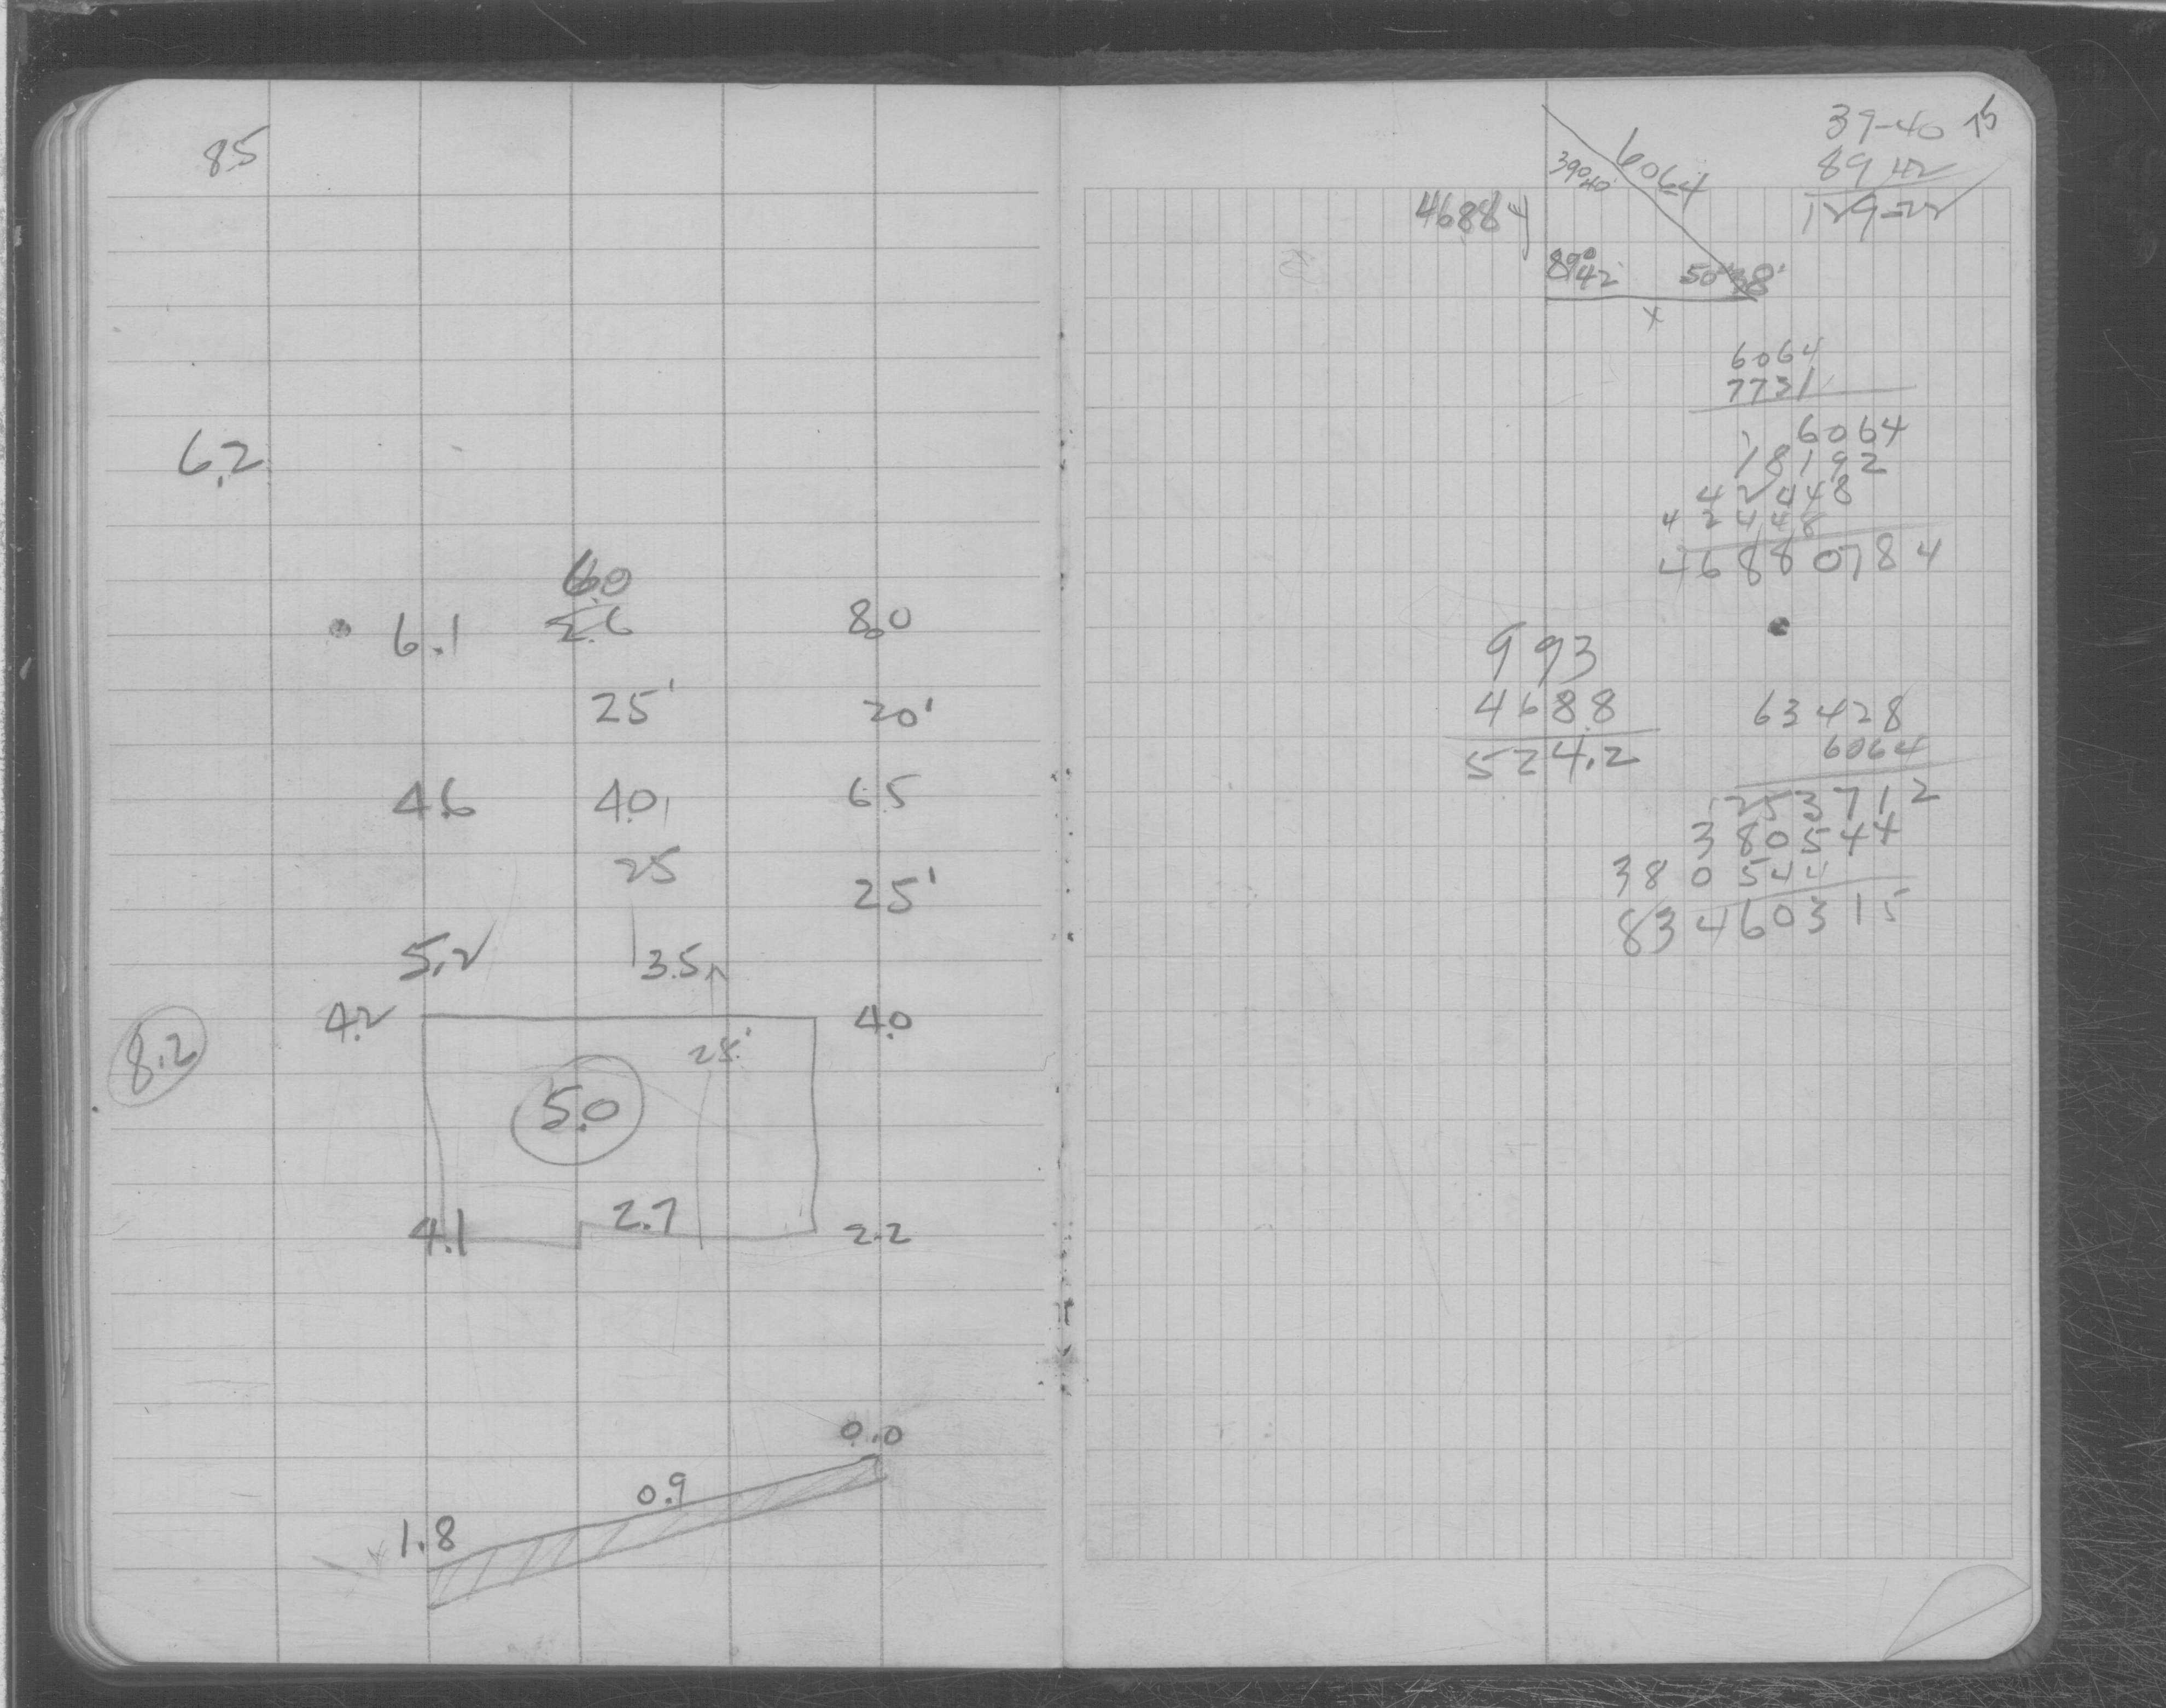 85
6.2
6.0
6.1 8.0
25' 20'
4.6 4.0 6.5
25
25'
5.2 3.5
4.2 4.0
8.2
28'
5.0
4.1 2.7 2.2
0.0
0.9
1.8
39-40 75
89 42
129-22
39° 40' 6064
4688 y
89° 42' 50° 38'
x
6064
7731
6064
18192
42448
42448
46880784
993
4688
524.2
63428
6064
253712
380544
380544
83460315